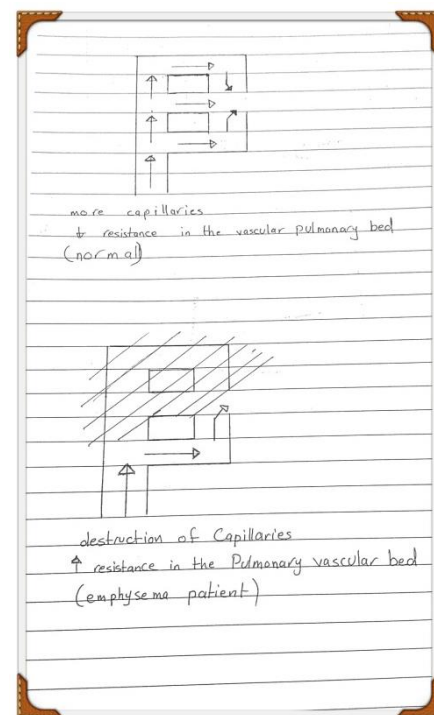 more capillaries
↓ resistance in the vascular pulmonary bed
(normal)
destruction of Capillaries
↑ resistance in the Pulmonary vascular bed
(emphysema patient)